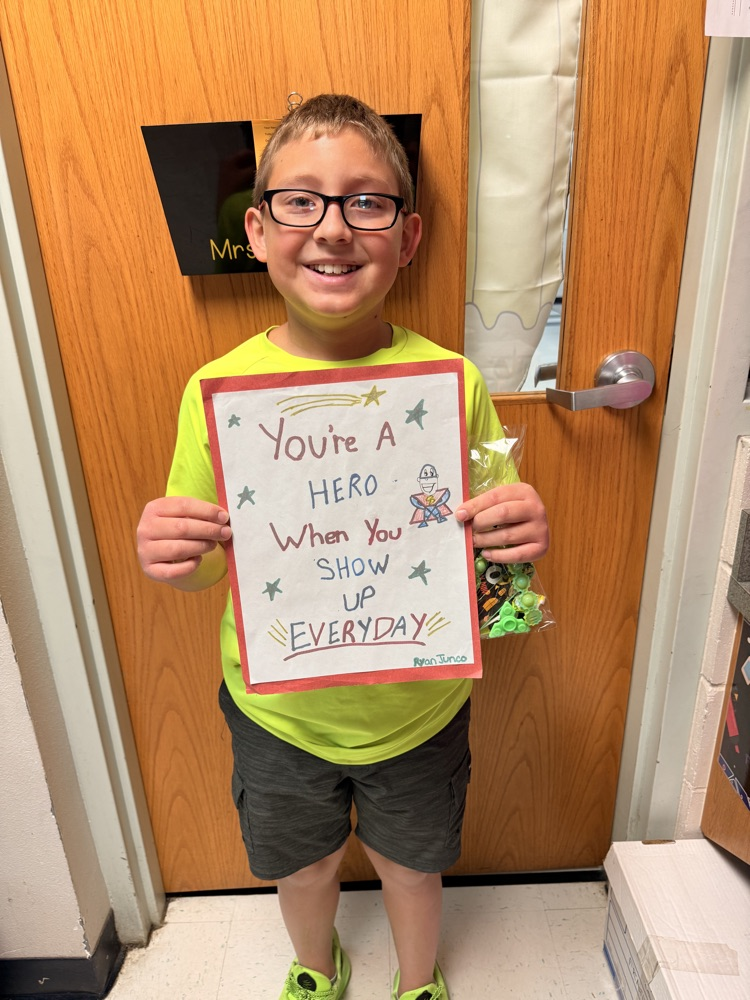 Mrs
You're A
HERO
When You
SHOW
UP
EVERYDAY
Ryan Junco